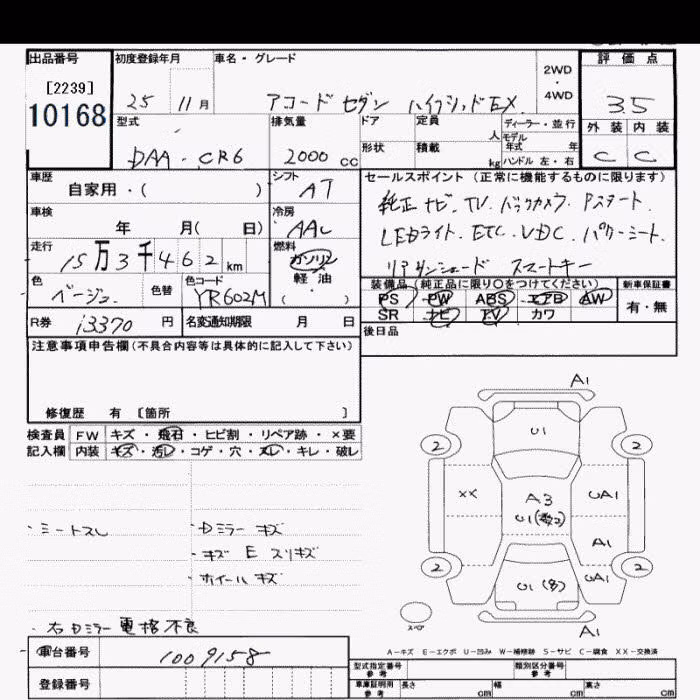 出品番号 初度登録年月 車名・グレード 評価点
[2239] 2WD・4WD
10168 25 11月 アコード セダン ハイブリッドEX 3.5
型式 排気量 ドア 定員 人 ディーラー・並行 外装 内装
モデル年式 年
DAA-CR6 2000 cc 形状 積載 kg ハンドル 左・右 C C
車歴 シフト セールスポイント(正常に機能するものに限ります)
自家用・( ) AT 純正ナビ.TV.バックカメラ.Pスタート.
車検 冷房
年 月( 日) AAC LEDライト.ETC.VDC.パワーシート.
走行 燃料
15万3千462km ガソリン リアサンシェード スマートキー
色 色替 色コード 軽油 装備品(純正品に限り○をつけてください) 新車保証書
ベージュ YR602M ( ) PS PW ABS エアB AW 有・無
SR ナビ TV カワ
R券 13370 円 名変通知期限 月 日 後日品
注意事項申告欄(不具合内容等は具体的に記入して下さい)
修復歴 有 〔箇所 〕
検査員 FW キズ・飛石・ヒビ割・リペア跡・×要
記入欄 内装 キズ・汚レ・コゲ・穴・スレ・キレ・破レ
A1
U1
2 2
XX A3 UA1
U1(数コ)
A1
2 2
U1(多) UA1
A1
スペア
・シートスレ ・Dミラー キズ
・キズ E スリキズ
・ホイールキズ
・右Dミラー電格不良
A-キズ E-エクボ U-凹み W-補修跡 S-サビ C-腐食 XX-交換済
車台番号 1009158 型式指定番号 参考 類別区分番号 参考
登録番号 車庫証明用 参考 長さ cm 幅 cm 高さ cm